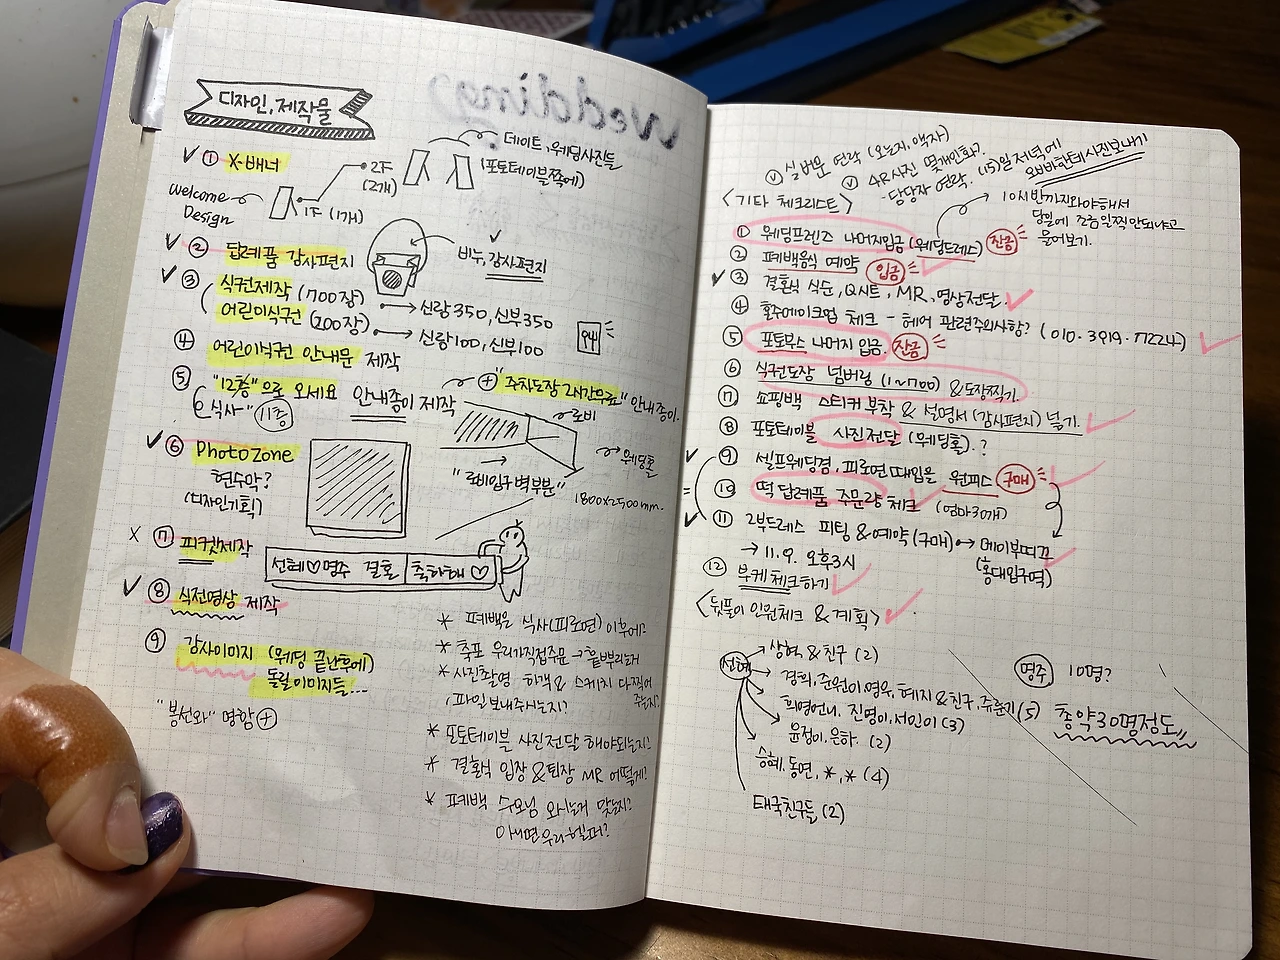 Wedding
디자인, 제작물
① X-배너
2F
(2개)
데이트, 웨딩사진들
(포토테이블쪽에)
Welcome
Design
1F (1개)
② 답례품 감사편지
비누, 감사편지
③ 식권제작 (700장)
어린이식권 (200장)
신랑350, 신부350
신랑100, 신부100
④ 어린이식권 안내문 제작
⑤ "12층"으로 오세요 안내종이 제작
식사" 11층
+ "주차도장 2시간무료" 안내종이.
로비
웨딩홀
"로비입구 벽부분"
1800x2500mm.
⑥ PhotoZone
현수막?
(디자인기획)
X ⑦ 피켓제작
선혜♡명주 결혼 축하해♡
⑧ 식전영상 제작
⑨ 감사이미지 (웨딩 끝난후에)
돌릴이미지들...
"봉선화" 명함 +
* 폐백은 식사(피로연) 이후에?
* 축포 우리가직접주문 → 흩뿌리는거
* 사진촬영 하객 & 스케치 다찍어
주는지?
파일보내주시는지?
* 포토테이블 사진전달 해야되는지?
* 결혼식 입장 & 퇴장 MR 어떻게?
* 폐백 수모님 오시는거 맞는지?
아니면우리헬퍼?
연락 (오는지, 액자)
사진 몇개인화?
- 담당자 연락. (15)일 저녁에
사진보내기
<기타 체크리스트>
10시반까지와야해서
당일에 조금일찍안되냐고
물어보기.
① 웨딩프렌즈 나머지입금 (웨딩드레스) 잔금
② 폐백음식 예약 입금
③ 결혼식 식순, Q시트, MR, 영상전달.
④ 혼주메이크업 체크 - 헤어 관련주의사항? (010.3919.7722)
⑤ 포토부스 나머지 입금. 잔금
⑥ 식권도장 넘버링 (1~700) & 도장찍기.
⑦ 쇼핑백 스티커 부착 & 설명서 (감사편지) 넣기.
⑧ 포토테이블 사진전달 (웨딩홀).?
⑨ 셀프웨딩겸, 피로연 때입을 원피스 구매
⑩ 떡 답례품 주문량 체크 (엄마30개)
⑪ 2부드레스 피팅 & 예약(구매) → 메이부띠끄
(홍대입구역)
→ 11.9. 오후3시
⑫ 부케체크하기
<뒷풀이 인원체크 & 계획>
선혜
상혁 & 친구 (2)
경희, 준원이, 영우, 혜지 & 친구, 주윤기 (5)
희영언니, 진영이, 서인이 (3)
윤정이, 은하. (2)
승혜, 동연, *, * (4)
태국친구들 (2)
명주 10명?
총약30명정도